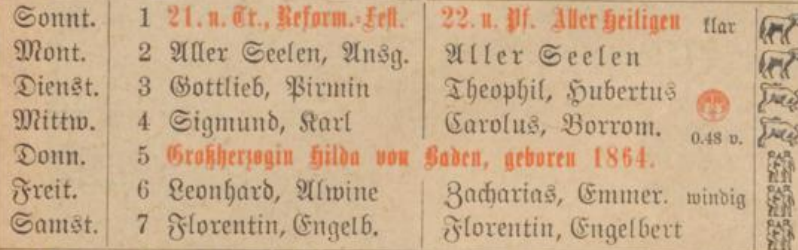 Sonnt. 1 21. n. Tr., Reform.-Fest. 22. n. Pf. Aller Heiligen klar
Mont. 2 Aller Seelen, Ansg. Aller Seelen
Dienst. 3 Gottlieb, Pirmin Theophil, Hubertus
Mittw. 4 Sigmund, Karl Carolus, Borrom. 0.48 v.
Donn. 5 Großherzogin Hilda von Baden, geboren 1864.
Freit. 6 Leonhard, Alwine Zacharias, Emmer. windig
Samst. 7 Florentin, Engelb. Florentin, Engelbert